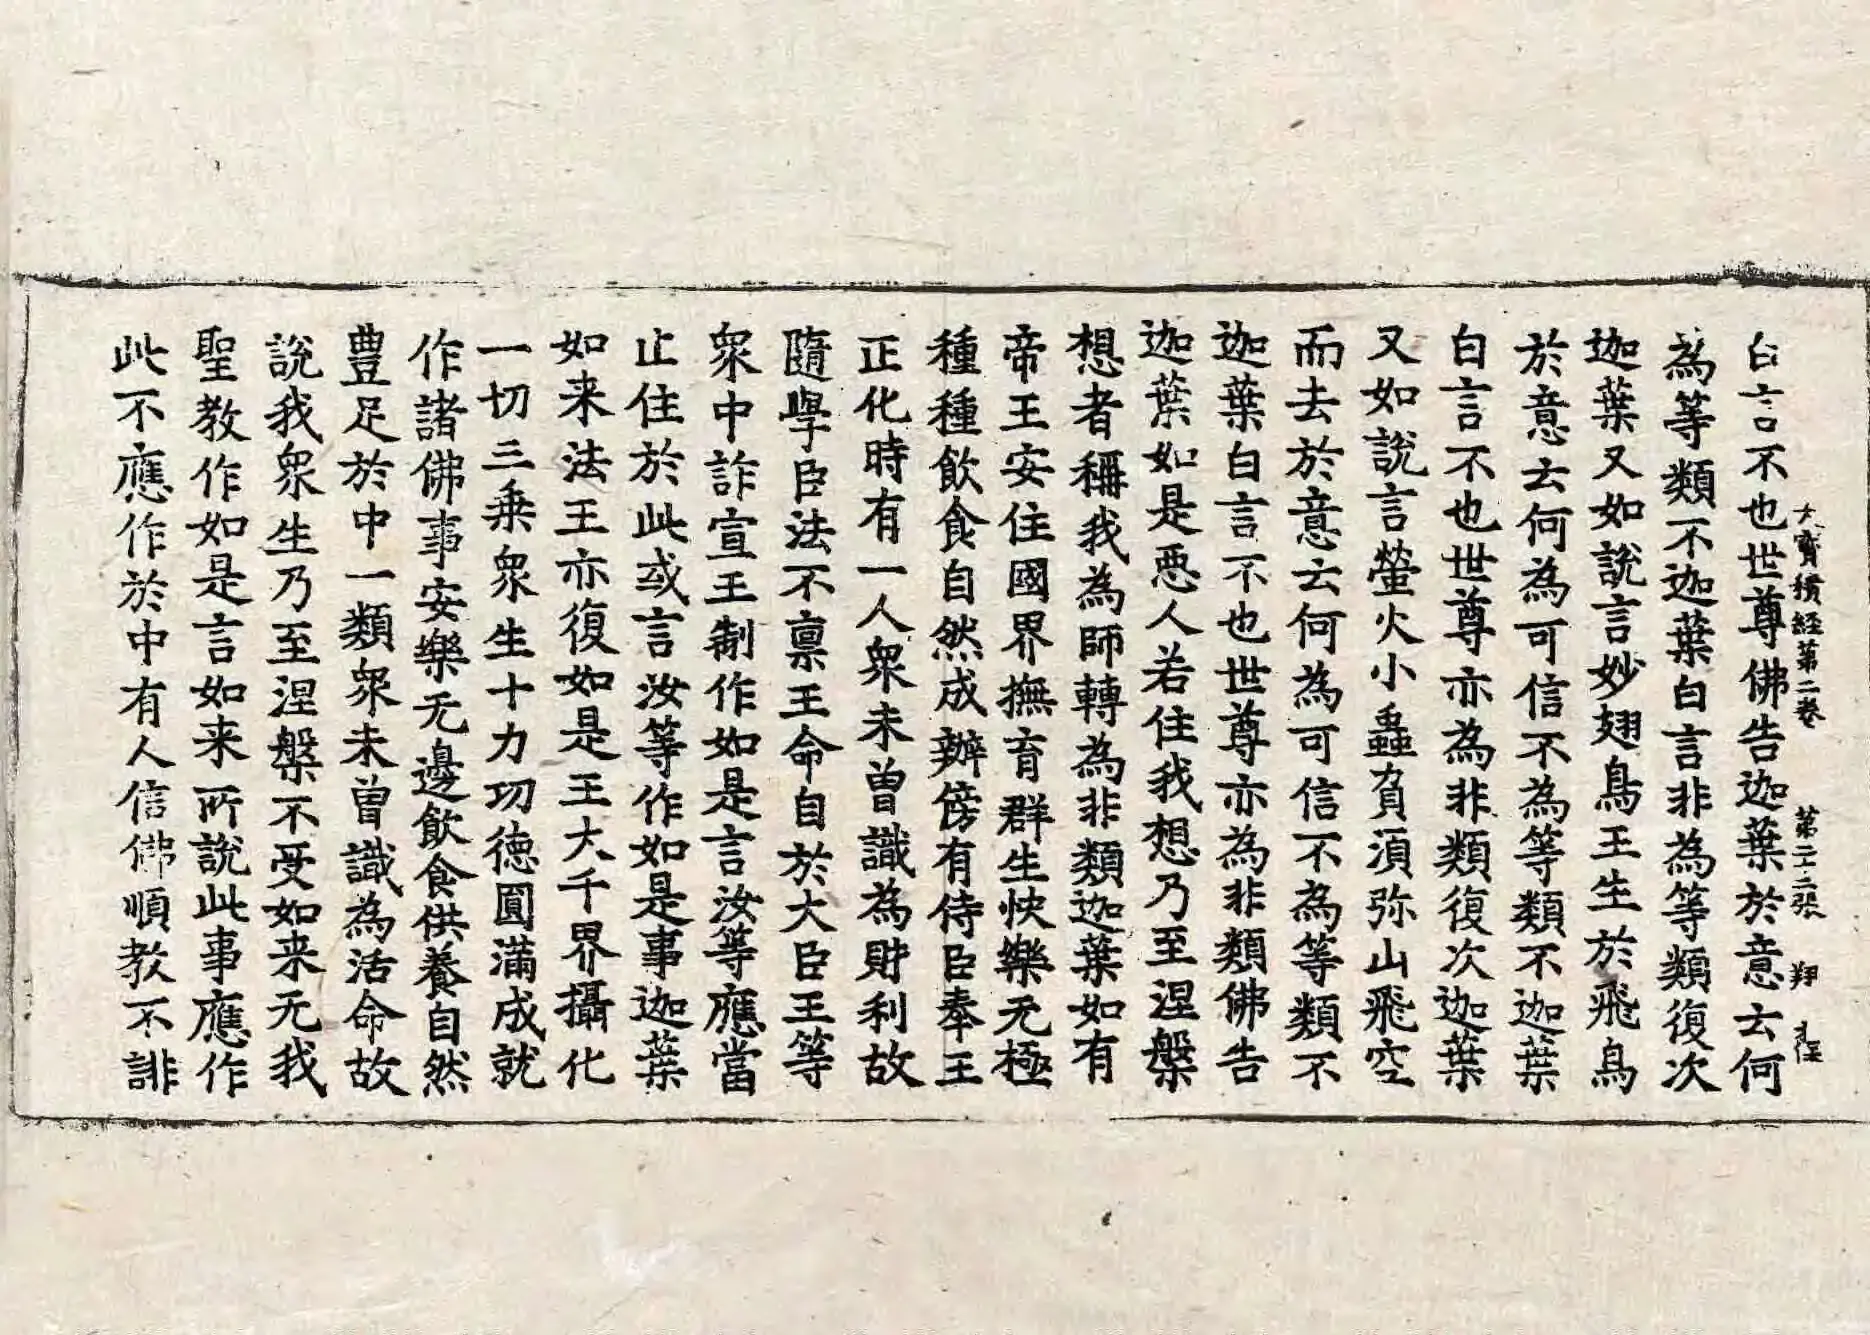 大寶積經第二卷 第二十二張 翔
白言不也世尊佛告迦葉於意云何
為等類不迦葉白言非為等類復次
迦葉又如說言妙翅鳥王生於飛鳥
於意云何為可信不為等類不迦葉
白言不也世尊亦為非類復次迦葉
又如說言螢火小蟲負湏弥山飛空
而去於意云何為可信不為等類不
迦葉白言不也世尊亦為非類佛告
迦葉如是惡人若住我想乃至涅槃
想者稱我為師轉為非類迦葉如有
帝王安住國界撫育群生快樂无極
種種飲食自然成辦傍有侍臣奉王
正化時有一人衆未曽識為財利故
隨學臣法不禀王命自於大臣王等
衆中詐宣王制作如是言汝等應當
止住於此或言汝等作如是事迦葉
如来法王亦復如是王大千界攝化
一切三乗衆生十力功德圓滿成就
作諸佛事安樂无邊飲食供養自然
豊足於中一類衆未曽識為活命故
說我衆生乃至涅槃不受如来无我
聖教作如是言如来所說此事應作
此不應作於中有人信佛順教不誹